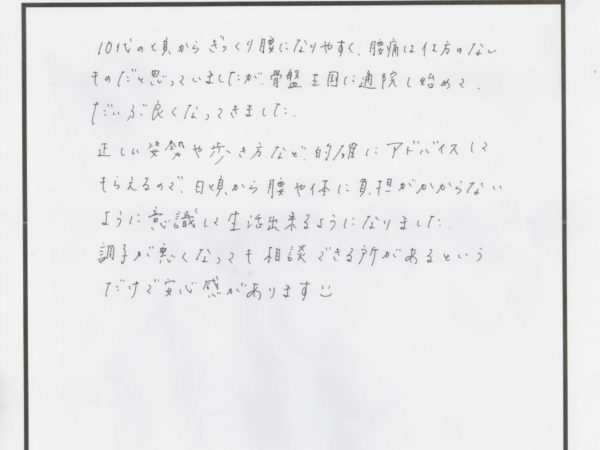 10代の頃からぎっくり腰になりやすく、腰痛は仕方のない
ものだと思っていましたが、骨盤王国に通院し始めて、
だいぶ良くなってきました。
正しい姿勢や歩き方など、的確にアドバイスして
もらえるので、日頃から腰や体に負担がかからない
ように意識して生活出来るようになりました。
調子が悪くなっても相談できる所があるという
だけで安心感があります